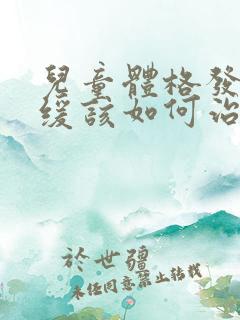 兒童體格發
緩該如何治
於世疆
未经同意禁止转载